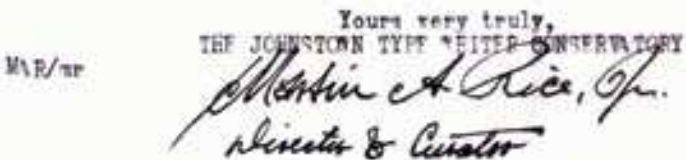 Yours very truly,
THE JOHNSTOWN TYPEWRITER CONSERVATORY
MAR/mr
Martin A. Rice, Jr.
Director & Curator